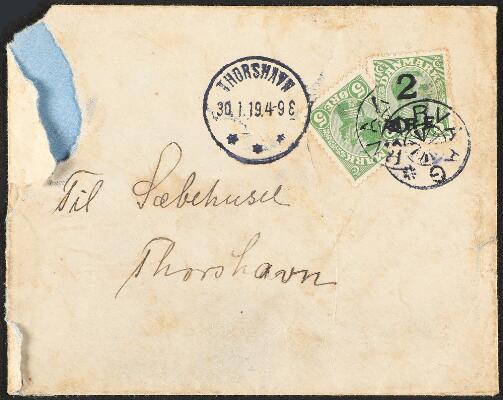 THORSHAVN
30.1.19.4-9 E
DANMARK
2
ØRE
5 ØRE 5
DANMARK
KVALVAG
Til Sæbehuset
Thorshavn